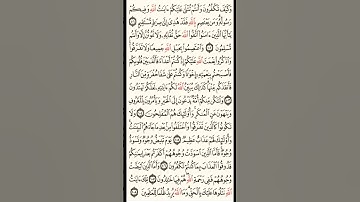 وَكَيْفَ تَكْفُرُونَ وَأَنتُمْ تُتْلَىٰ عَلَيْكُمْ ءَايَٰتُ ٱللَّهِ وَفِيكُمْ
رَسُولُهُۥ وَمَن يَعْتَصِم بِٱللَّهِ فَقَدْ هُدِىَ إِلَىٰ صِرَٰطٍ مُّسْتَقِيمٍ
يَٰٓأَيُّهَا ٱلَّذِينَ ءَامَنُوا۟ ٱتَّقُوا۟ ٱللَّهَ حَقَّ تُقَاتِهِۦ وَلَا تَمُوتُنَّ إِلَّا وَأَنتُم
مُّسْلِمُونَ وَٱعْتَصِمُوا۟ بِحَبْلِ ٱللَّهِ جَمِيعًا وَلَا تَفَرَّقُوا۟
وَٱذْكُرُوا۟ نِعْمَتَ ٱللَّهِ عَلَيْكُمْ إِذْ كُنتُمْ أَعْدَآءً فَأَلَّفَ بَيْنَ قُلُوبِكُمْ
فَأَصْبَحْتُم بِنِعْمَتِهِۦٓ إِخْوَٰنًا وَكُنتُمْ عَلَىٰ شَفَا حُفْرَةٍ مِّنَ ٱلنَّارِ
فَأَنقَذَكُم مِّنْهَا كَذَٰلِكَ يُبَيِّنُ ٱللَّهُ لَكُمْ ءَايَٰتِهِۦ لَعَلَّكُمْ تَهْتَدُونَ
وَلْتَكُن مِّنكُمْ أُمَّةٌ يَدْعُونَ إِلَى ٱلْخَيْرِ وَيَأْمُرُونَ بِٱلْمَعْرُوفِ
وَيَنْهَوْنَ عَنِ ٱلْمُنكَرِ وَأُو۟لَٰٓئِكَ هُمُ ٱلْمُفْلِحُونَ وَلَا
تَكُونُوا۟ كَٱلَّذِينَ تَفَرَّقُوا۟ وَٱخْتَلَفُوا۟ مِنۢ بَعْدِ مَا جَآءَهُمُ ٱلْبَيِّنَٰتُ
وَأُو۟لَٰٓئِكَ لَهُمْ عَذَابٌ عَظِيمٌ يَوْمَ تَبْيَضُّ وُجُوهٌ وَتَسْوَدُّ
وُجُوهٌ فَأَمَّا ٱلَّذِينَ ٱسْوَدَّتْ وُجُوهُهُمْ أَكَفَرْتُم بَعْدَ إِيمَٰنِكُمْ
فَذُوقُوا۟ ٱلْعَذَابَ بِمَا كُنتُمْ تَكْفُرُونَ وَأَمَّا ٱلَّذِينَ ٱبْيَضَّتْ
وُجُوهُهُمْ فَفِى رَحْمَةِ ٱللَّهِ هُمْ فِيهَا خَٰلِدُونَ تِلْكَ ءَايَٰتُ
ٱللَّهِ نَتْلُوهَا عَلَيْكَ بِٱلْحَقِّ وَمَا ٱللَّهُ يُرِيدُ ظُلْمًا لِّلْعَٰلَمِينَ